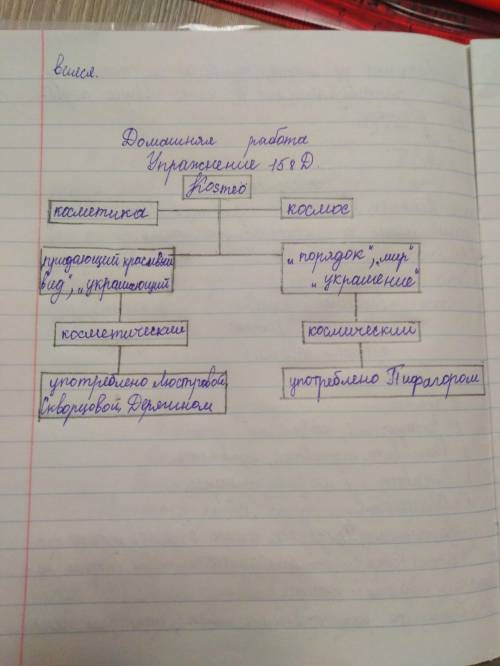 вился.
Домашняя работа
Упражнение 158 Д.
Kosmeo
косметика
космос
придающий красивый
вид", "украшающий
„порядок", „мир"
„украшение"
косметический
космический
употреблено Люстровой,
Скворцовой, Дерягином
употреблено Пифагором